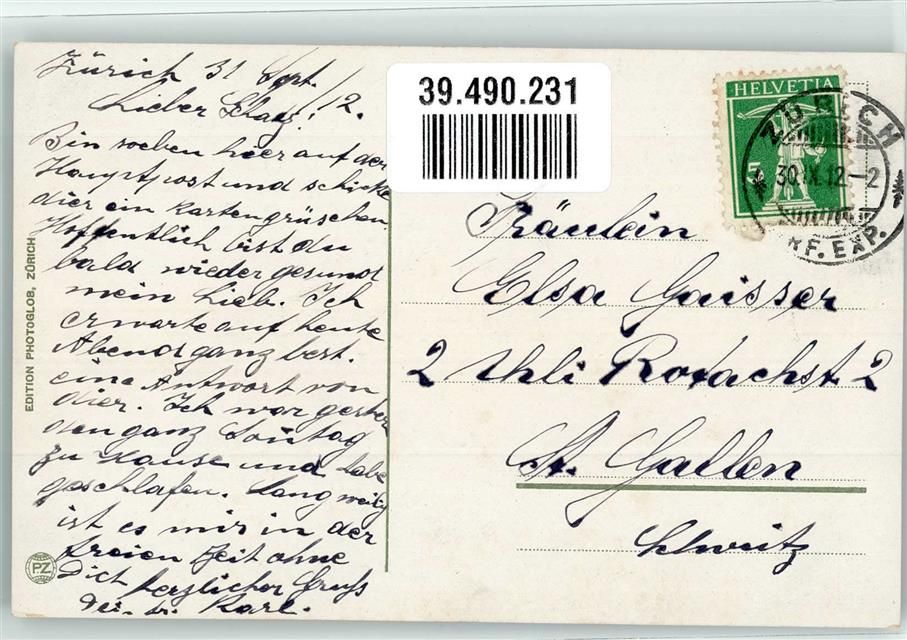 Zürich 31 Sept. /12.
Lieber Schatz!
Bin soeben hier auf der
Hauptpost und schicke
dier ein kartengrüschen
Hoffentlich bist du
bald wieder gesund
mein Lieb. Ich
erwarte auf heute
Abend ganz best.
eine Antwort von
dier. Ich war gestern
den ganz Sontag
zu Hause und habe
geschlafen. Langweilig
ist es mir in der
freien Zeit ohne
Dich herzlicher Gruss
Karl.
EDITION PHOTOGLOB, ZÜRICH
PZ
39.490.231
HELVETIA
5
ZÜRICH
30.IX.12.-2
BRF. EXP.
Fräulein
Elsa Gaisser
2 Uhli Rorachst 2
St. Gallen
Schweitz